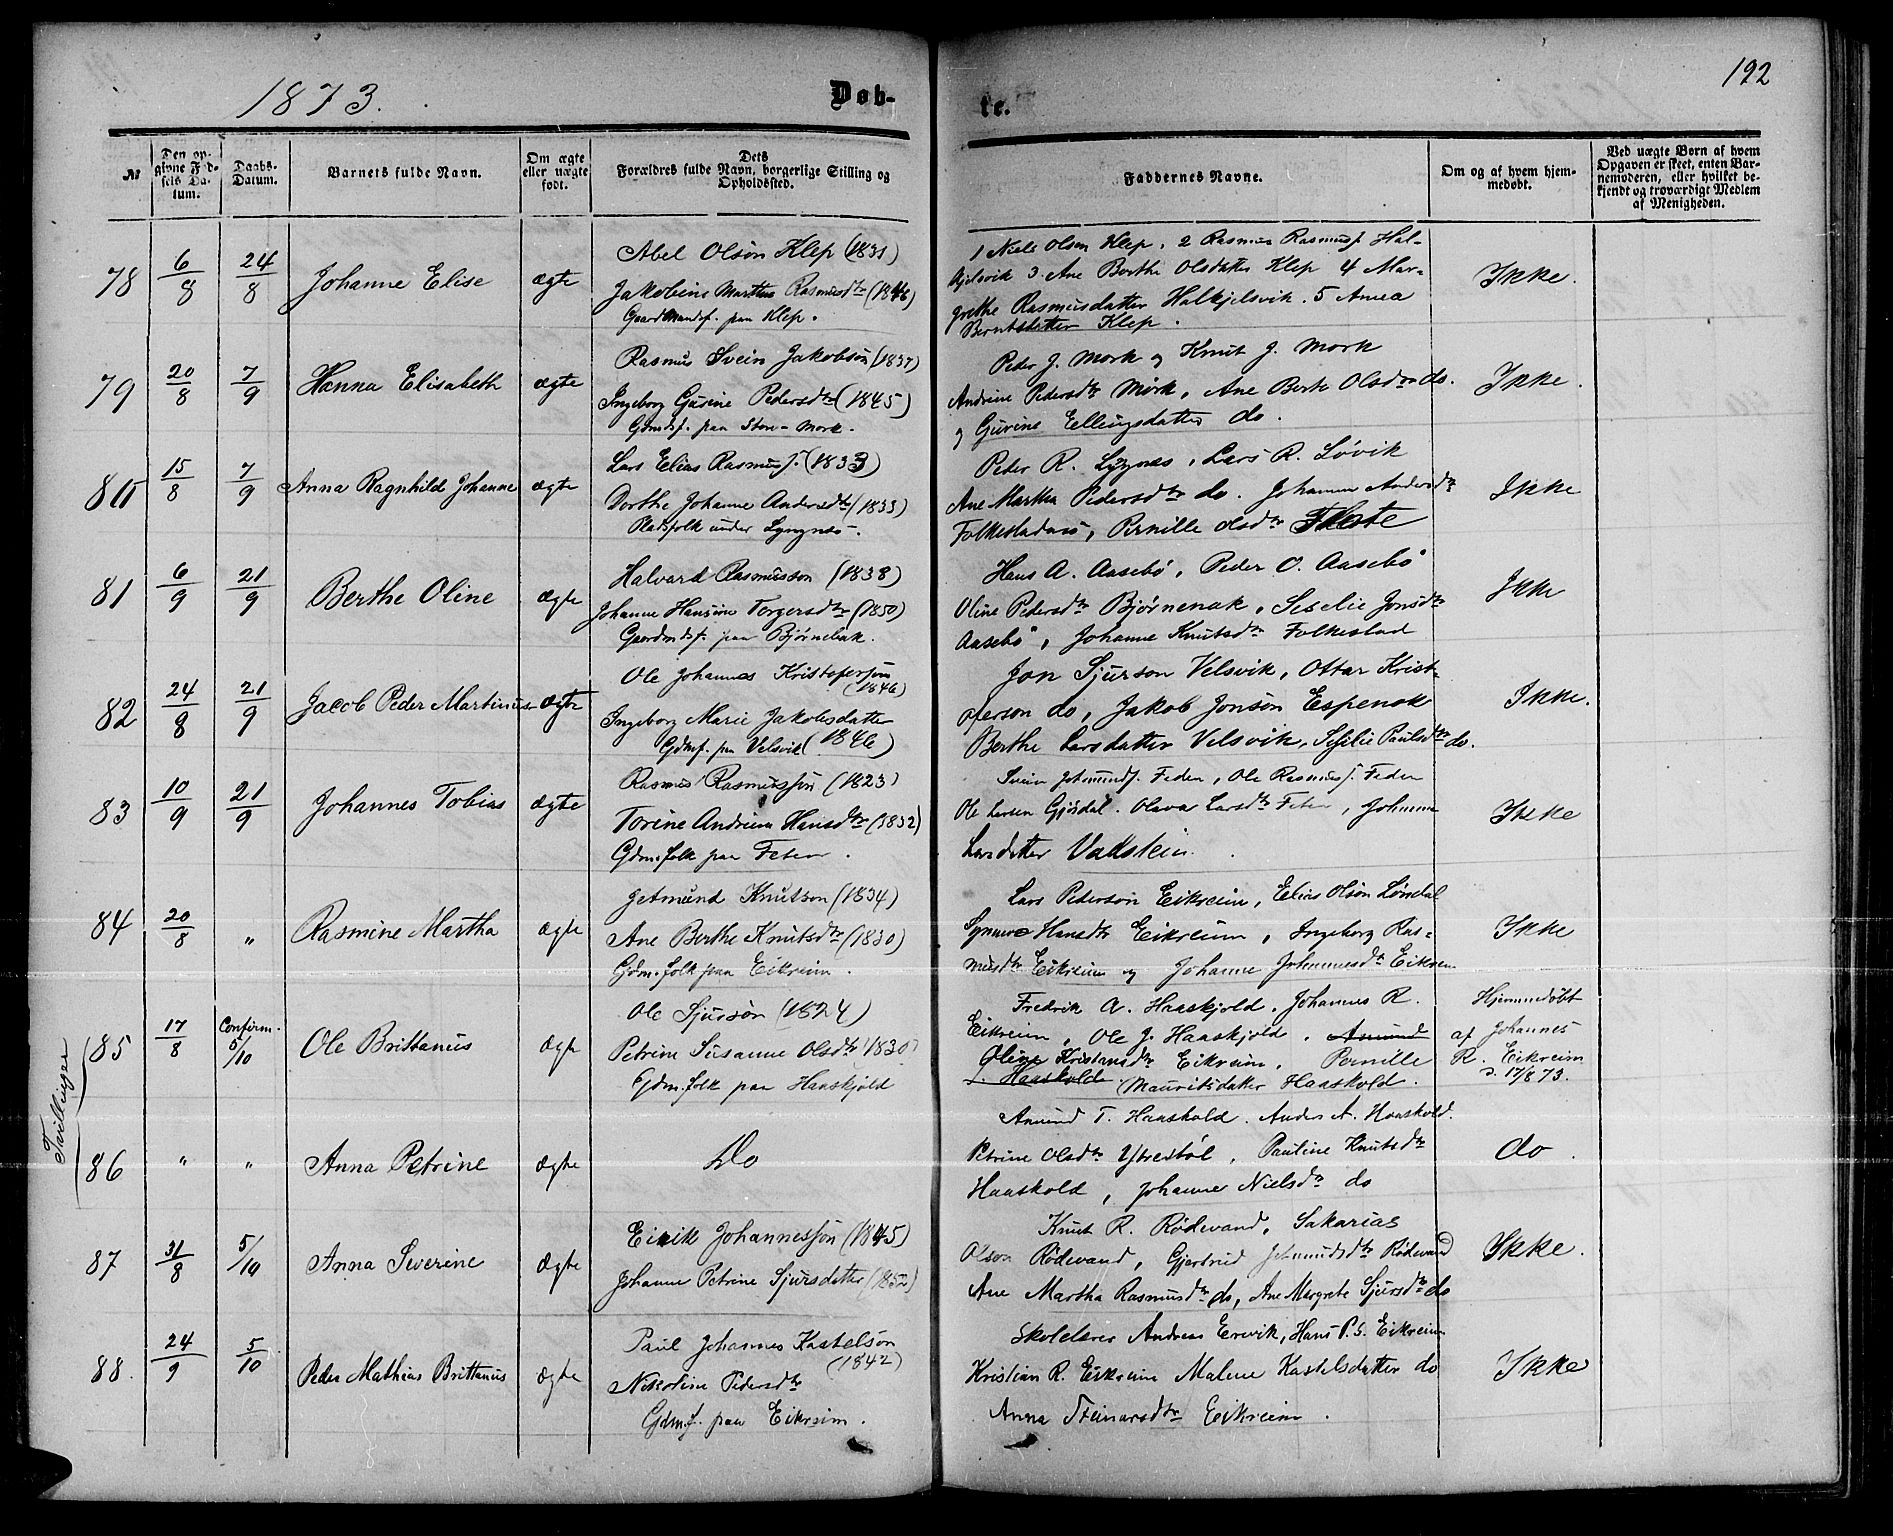 1873.
Døb-
te.
192
№
Den op-
givne Fød-
sels Da-
tum.
Daabs-
Datum.
Barnets fulde Navn.
Om ægte
eller uægte
født.
Dets
Forældres fulde Navn, borgerlige Stilling og
Opholdssted.
Faddernes Navne.
Om og af hvem hjem-
medøbt.
Ved uægte Børn af hvem
Opgaven er skeet, enten Bar-
nemoderen, eller hvilket be-
kjendt og troværdigt Medlem
af Menigheden.
78 6/8 24/8 Johanne Elise ægte
Abel Olson Klep (1831)
Jakobine Marthe Rasmusdtr (1846)
Gaardmandsf. paa Klep.
1 Niels Olsen Klep. 2 Rasmus Rasmusf. Hal-
kjelsvik 3. Ane Berthe Olsdatter Klep 4 Mar-
grethe Rasmusdatter Halkjelsvik. 5 Anna
Berntsdatter Klep.
Ikke.
79 20/8 7/9 Hanna Elisabeth ægte
Rasmus Svein Jakobson (1837)
Ingeborg Gurine Pedersdtr (1845)
Gdmdsf. paa Store-Mork.
Peder J. Mork og Knut J. Mork
Andrine Pedersdtr Mork, Ane Berte Olsdtr do.
og Gurine Ellingsdatter do.
Ikke.
80 15/8 7/9 Anna Ragnhild Johanne ægte
Lars Elias Rasmusf. (1833)
Dorthe Johanne Andersdtr (1833)
Pladsfolk under Lyngnes.
Peder R. Lyngnes, Lars R. Løvik
Ane Martha Pedersdtr do. Johanne Andersdtr
Folkestadnes, Pernille Olsdtr
Ikke
81 6/9 21/9 Berthe Oline ægte
Halvard Rasmusson (1838)
Johanne Hansine Torgersdtr (1850)
Gaardmdsf. paa Bjørnenak.
Hans A. Aasebø, Peder O. Aasebø
Oline Pedersdtr Bjørnenak, Seselie Jonsdtr
Aasebø, Johanne Knutsdtr Folkestad
Ikke
82 24/8 21/9 Jacob Peder Martinus ægte
Ole Johannes Kristoferson
(1846)
Ingeborg Marie Jakobsdatter
Gdmf. paa Velsvik (1846)
Jon Sjurson Velsvik, Ottar Krist-
oferson do, Jakob Jonson Espenak
Berthe Larsdatter Velsvik, Sesilie Paulsdtr do.
Ikke.
83 10/9 21/9 Johannes Tobias ægte
Rasmus Rasmusson (1823)
Torine Andrine Hansdtr (1832)
Gdm.folk paa Feten.
Svein Jetmundf. Feden, Ole Rasmusf. Feden
Ole Larsen Gjøsdal. Olava Larsdtr Feten, Johanne
Larsdatter Vadstein.
Ikke
84 20/8 " Rasmine Martha ægte
Jetmund Knutson (1834)
Ane Berthe Knutsdtr (1830)
Gdm.folk paa Eikreim.
Lars Pederson Eikreim, Elias Olson Løvdal
Synnøve Hansdtr Eikreim, Ingeborg Ras-
musdtr Eikreim og Johanne Johannesdtr Eikrem
Ikke
Tvillinger
85 17/8 Confirm. 5/10 Ole Brittanus ægte
Ole Sjurson (1824)
Petrine Susanne Olsdtr 1830
Gdm.folk paa Haaskjold
Fredrik A. Haaskjold, Johannes R.
Eikreim, Ole J. Haaskjold, Amund
Oline Kristiansdtr Eikreim, Pernille
Haaskold Mauritsdatter Haaskold.
Hjemmedøbt
af Johannes
R. Eikreim
d. 17/8 73.
86 " " Anna Petrine ægte
Do
Amund T. Haaskold. Anders A. Haaskold.
Petrine Olsdtr Ytrestøl, Pauline Knutsdtr
Haaskold, Johanne Nielsdtr do
do.
87 31/8 5/10 Anna Severine ægte
Eirik Johannesson (1845)
Johanne Petrine Sjursdatter (1852)
Knut R. Rødevand, Sakarias
Olson Rødevand, Gjertrud Jetmundsdtr Rødevand
Ane Martha Rasmusdtr do, Ane Margrete Sjursdtr do
Ikke.
88. 24/9 5/10 Peder Mathias Brittanus ægte
Paul Johannes Kastelson
(1842)
Nikoline Pedersdtr
Gdm.f. paa Eikreim.
Skolelærer Andreas Ervik, Hans P.S. Eikreim
Kristian R. Eikreim Malene Kastelsdatter do
Anna Steinarsdtr Eikreim.
Ikke